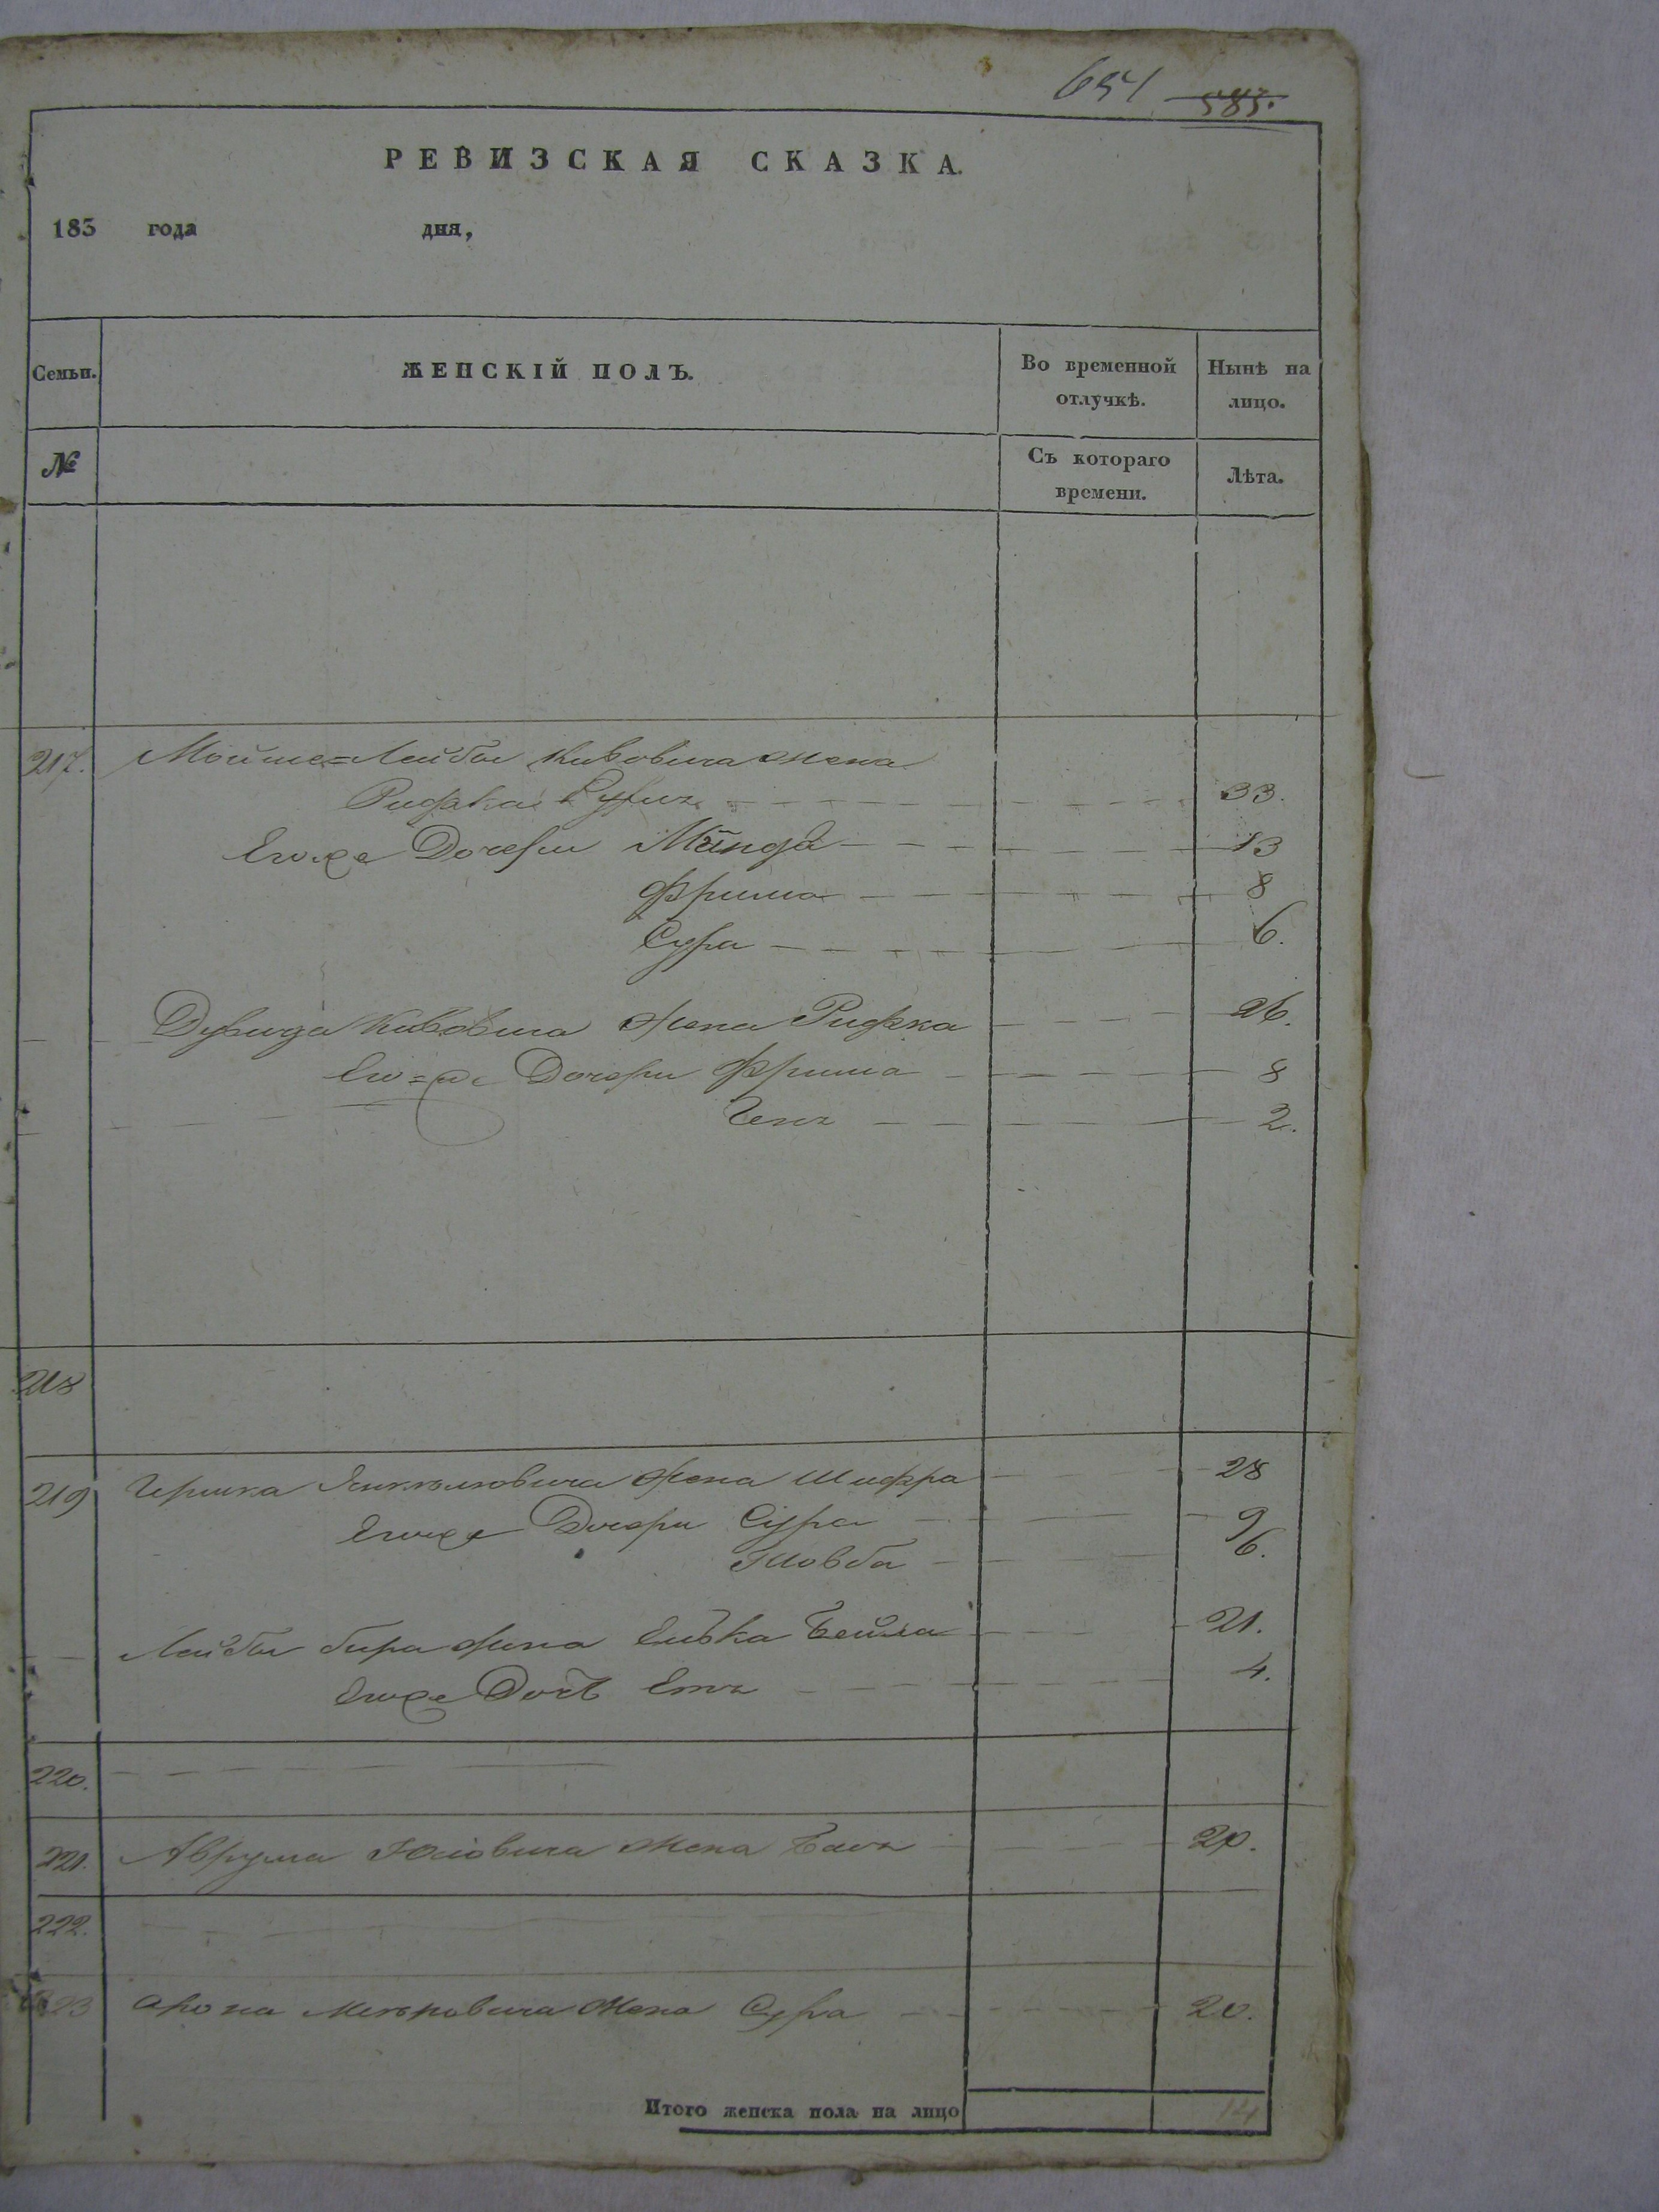 654 585.
РЕВИЗСКАЯ СКАЗКА.
183 года дня,
Семьи. ЖЕНСКІЙ ПОЛЪ. Во временной отлучкѣ. Нынѣ на лицо.
№ Съ котораго времени. Лѣта.
217. Мойше=Лейбы Кивовича жена
Рифка 33.
Егоже Дочери Минда 13
Фрима 8
Сура 6.
Дувида Кивовича жена Рифка 26.
Его=же Дочери Фрима 8
Геня 2.
218
219 Гершка Янкелевича жена Шифра 28
Егоже Дочери Сура 9
6.
Лейбы жена Бейла 21.
Егоже Дочь 4.
220.
221. Аврума жена Бася 20.
222.
223 Арона жена Сура 20.
Итого женска пола на лицо 14